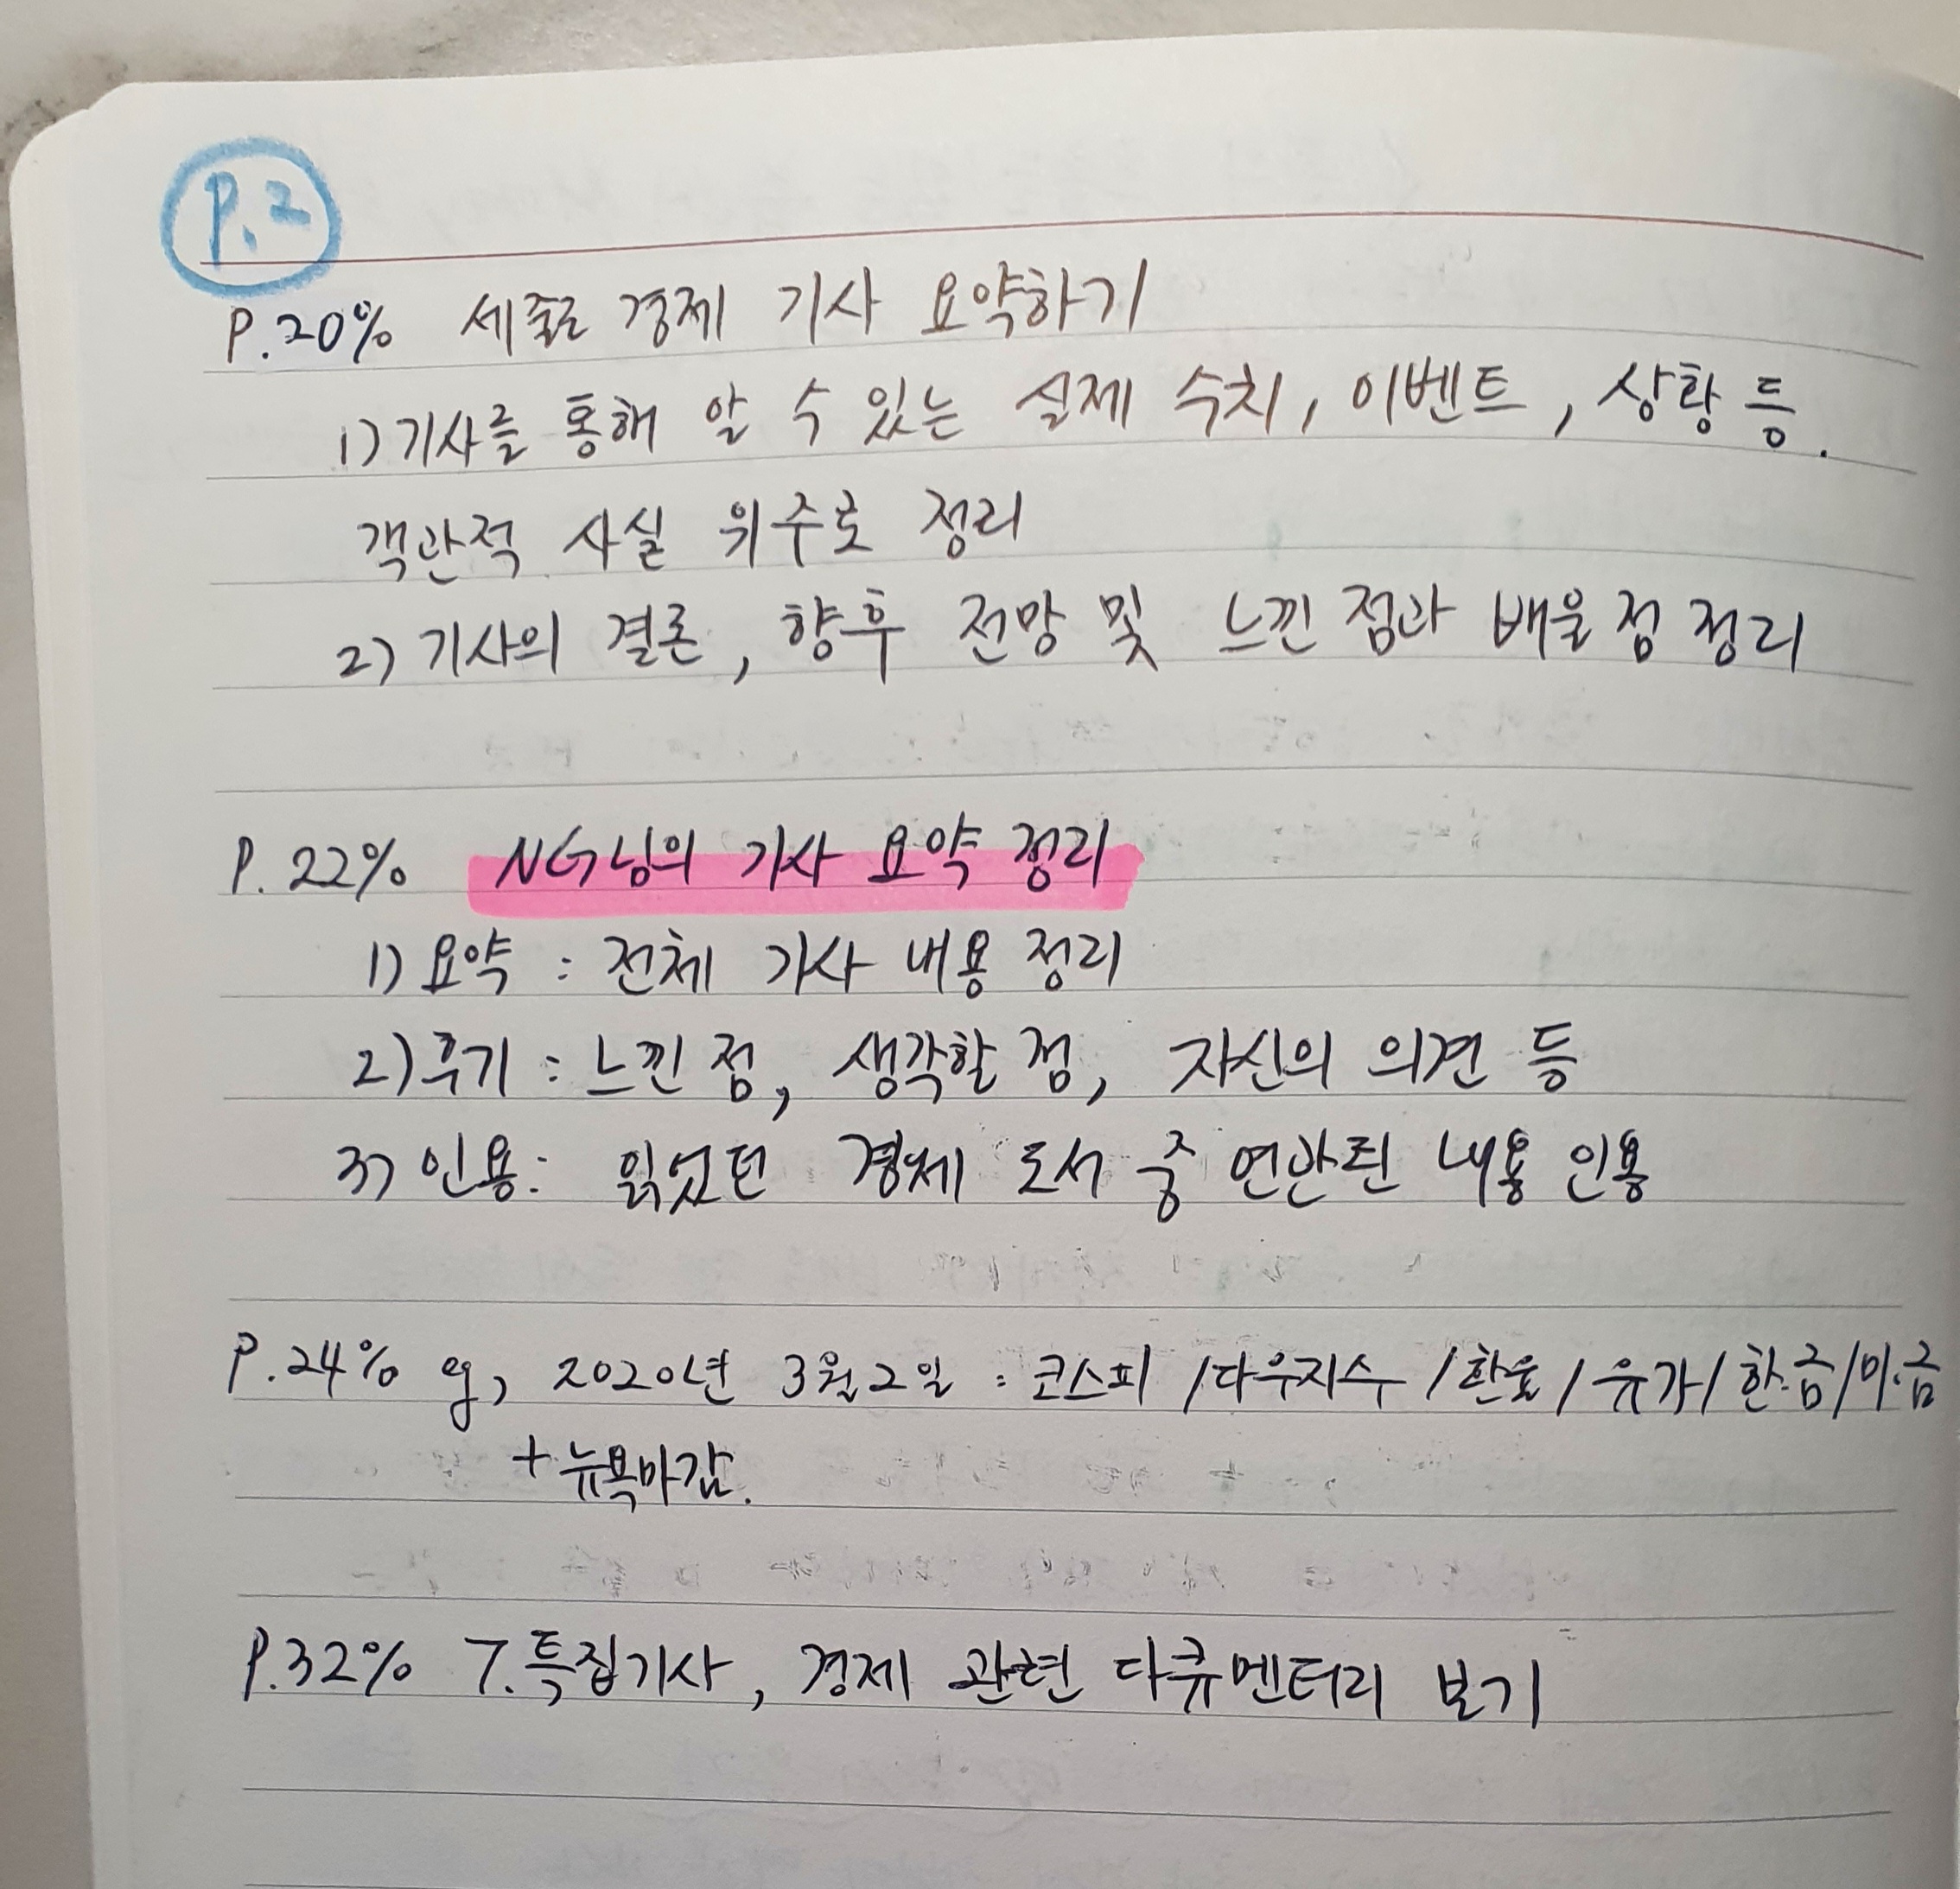 P.2
P.20% 세줄로 경제 기사 요약하기
1) 기사를 통해 알 수 있는 실제 수치, 이벤트, 상황 등.
객관적 사실 위주로 정리
2) 기사의 결론, 향후 전망 및 느낀 점과 배울 점 정리
P.22% NG님의 기사 요약 정리
1) 요약 : 전체 기사 내용 정리
2) 후기 : 느낀 점, 생각할 점, 자신의 의견 등
3) 인용: 읽었던 경제 도서 중 연관된 내용 인용
P.24% eg, 2020년 3월 2일 : 코스피 / 다우지수 / 환율 / 유가 / 한.금 / 미.금
+ 뉴욕마감.
P.32% 7. 특집기사, 경제 관련 다큐멘터리 보기